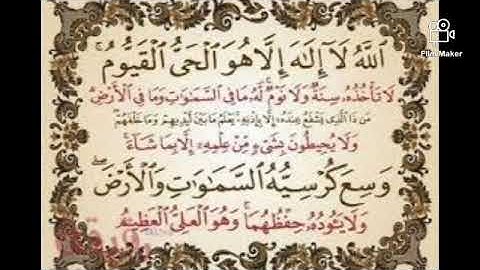 FilmMaker
ٱللَّهُ لَآ إِلَٰهَ إِلَّا هُوَ ٱلْحَىُّ ٱلْقَيُّومُ ۚ
لَا تَأْخُذُهُۥ سِنَةٌ وَلَا نَوْمٌ ۚ لَّهُۥ مَا فِى ٱلسَّمَٰوَٰتِ وَمَا فِى ٱلْأَرْضِ ۗ
مَن ذَا ٱلَّذِى يَشْفَعُ عِندَهُۥٓ إِلَّا بِإِذْنِهِۦ ۚ يَعْلَمُ مَا بَيْنَ أَيْدِيهِمْ وَمَا خَلْفَهُمْ ۖ
وَلَا يُحِيطُونَ بِشَىْءٍ مِّنْ عِلْمِهِۦٓ إِلَّا بِمَا شَآءَ ۚ
وَسِعَ كُرْسِيُّهُ ٱلسَّمَٰوَٰتِ وَٱلْأَرْضَ ۖ
وَلَا يَـُٔودُهُۥ حِفْظُهُمَا ۚ وَهُوَ ٱلْعَلِىُّ ٱلْعَظِيمُ